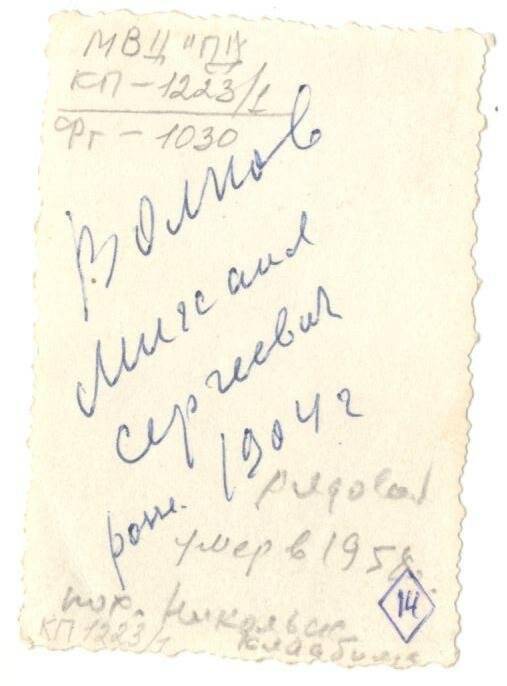 МВЦ "ПД"
КП-1223/1
Фг-1030
Волков
Михаил
Сергеевич
рожд. 1904 г
рядовой
умер в 1958.
пох. Никольск
кладбище
КП 1223/1
14